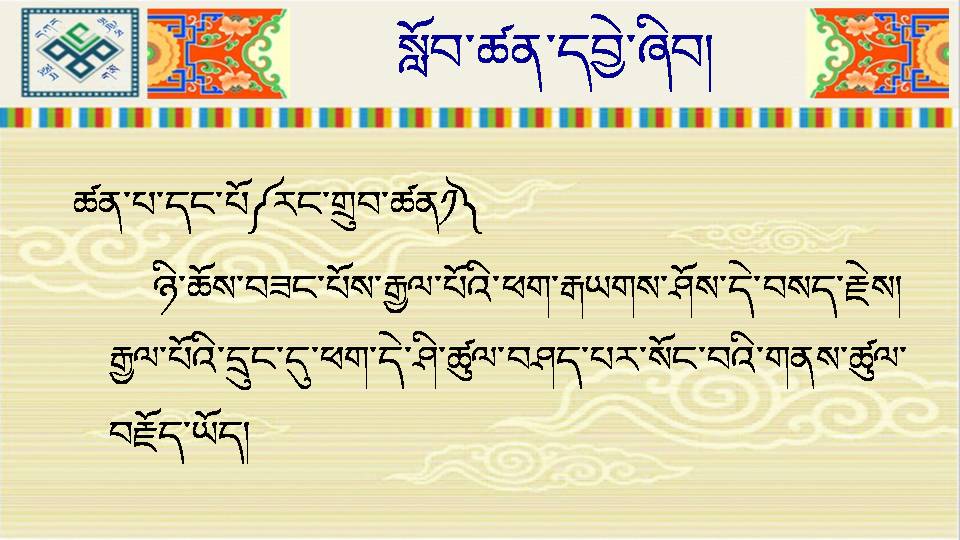 སློབ་ཚན་དབྱེ་ཞིབ།
ཚན་པ་དང་པོ༼རང་གྲུབ་ཚན༡༽
ཉི་ཆོས་བཟང་པོས་རྒྱལ་པོའི་ཕག་རྒྱགས་ཤོས་དེ་བསད་རྗེས།
རྒྱལ་པོའི་དྲུང་དུ་ཕག་དེ་ཤི་ཚུལ་བཤད་པར་སོང་བའི་གནས་ཚུལ་
བརྗོད་ཡོད།